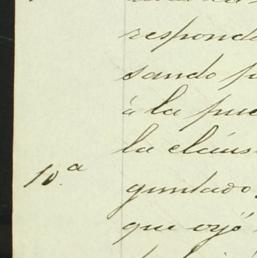 respond
sando p
á la pue
la cláus
10.ª guntado,
que oyó